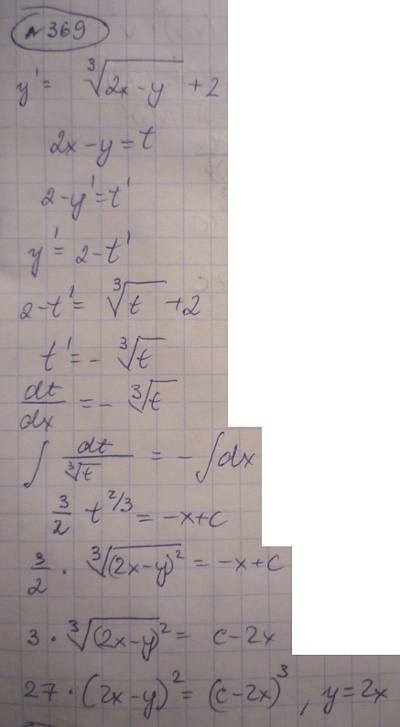 №369
y' = ∛(2x-y) + 2
2x-y=t
2-y'=t'
y'=2-t'
2-t'= ∛t +2
t'=- ∛t
dt/dx =- ∛t
∫ dt/∛t = -∫dx
3/2 t^2/3 = -x+c
3/2 · ∛(2x-y)² = -x+c
3 · ∛(2x-y)² = c-2x
27 · (2x-y)² = (c-2x)³ , y=2x